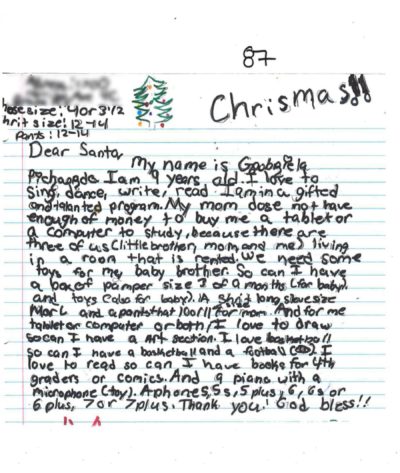 87
Chrismas!!
size: 4 or 3½
size: 12-14
Pants: 12-14
Dear Santa,
My name is
I am 9 years old. I love to
Sing, dance, write, read. I am in a gifted
and talanted program. My mom dose not have
enough of money to buy me a tablet or
a computer to study, because there are
three of us (little brother, mom, and me) living
in a room that is rented. We need some
toys for my baby brother. So can I have
a box of pamper size 3 of 9 months (for baby)
and toys (also for baby). A shirt long slave size
and a pants that for mom. And for me
tablet or computer or both, I love to draw
so can I have a Art section. I love basketball
so can I have a basketball and a football. I
love to read so can I have books for 4th
graders or comics. And a piano with a
microphone (toy). A phone 5, 5s, 5 plus, 6, 6s or
6 plus, 7 or 7 plus. Thank you! God bless!!